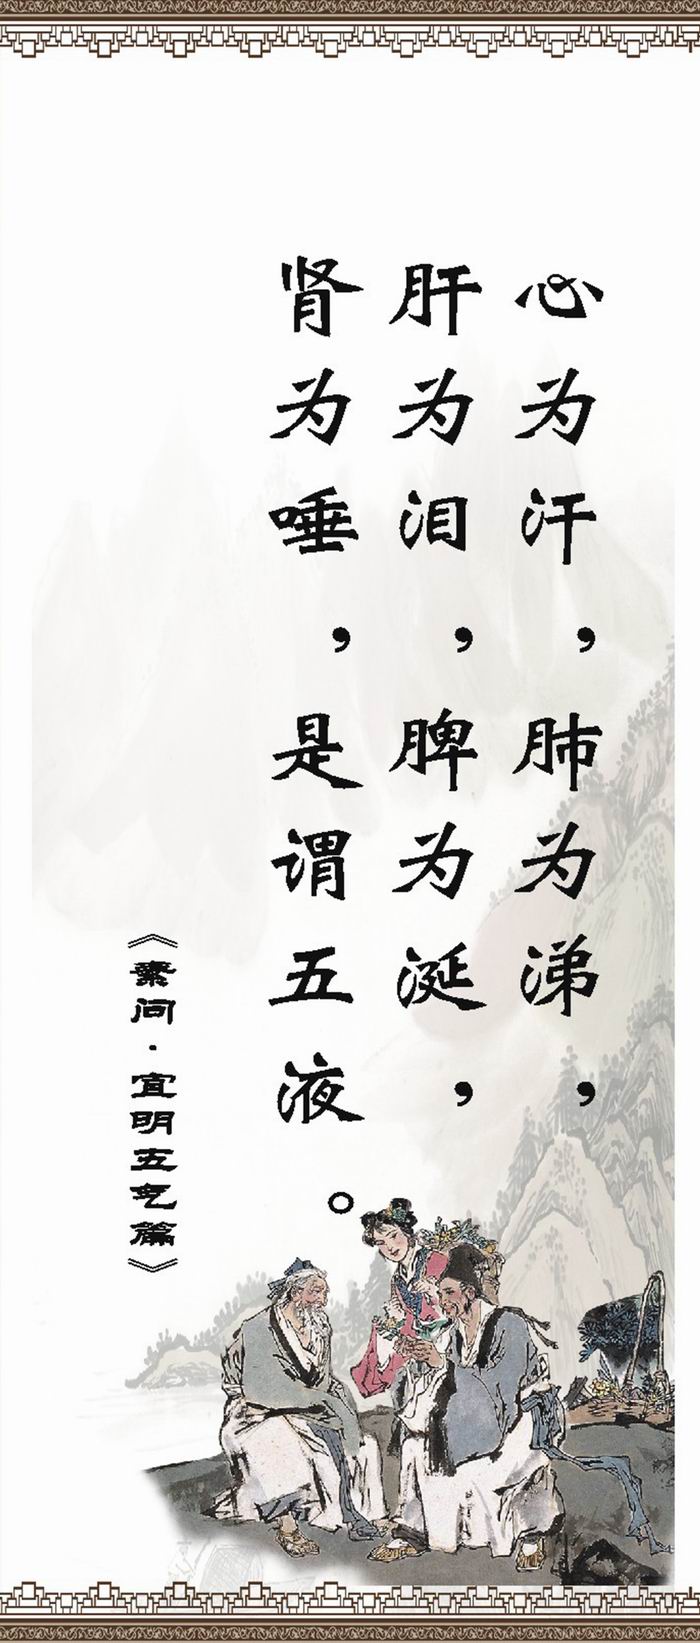 心为汗，肺为涕，
肝为泪，脾为涎，
肾为唾，是谓五液。
《素问·宜明五气篇》